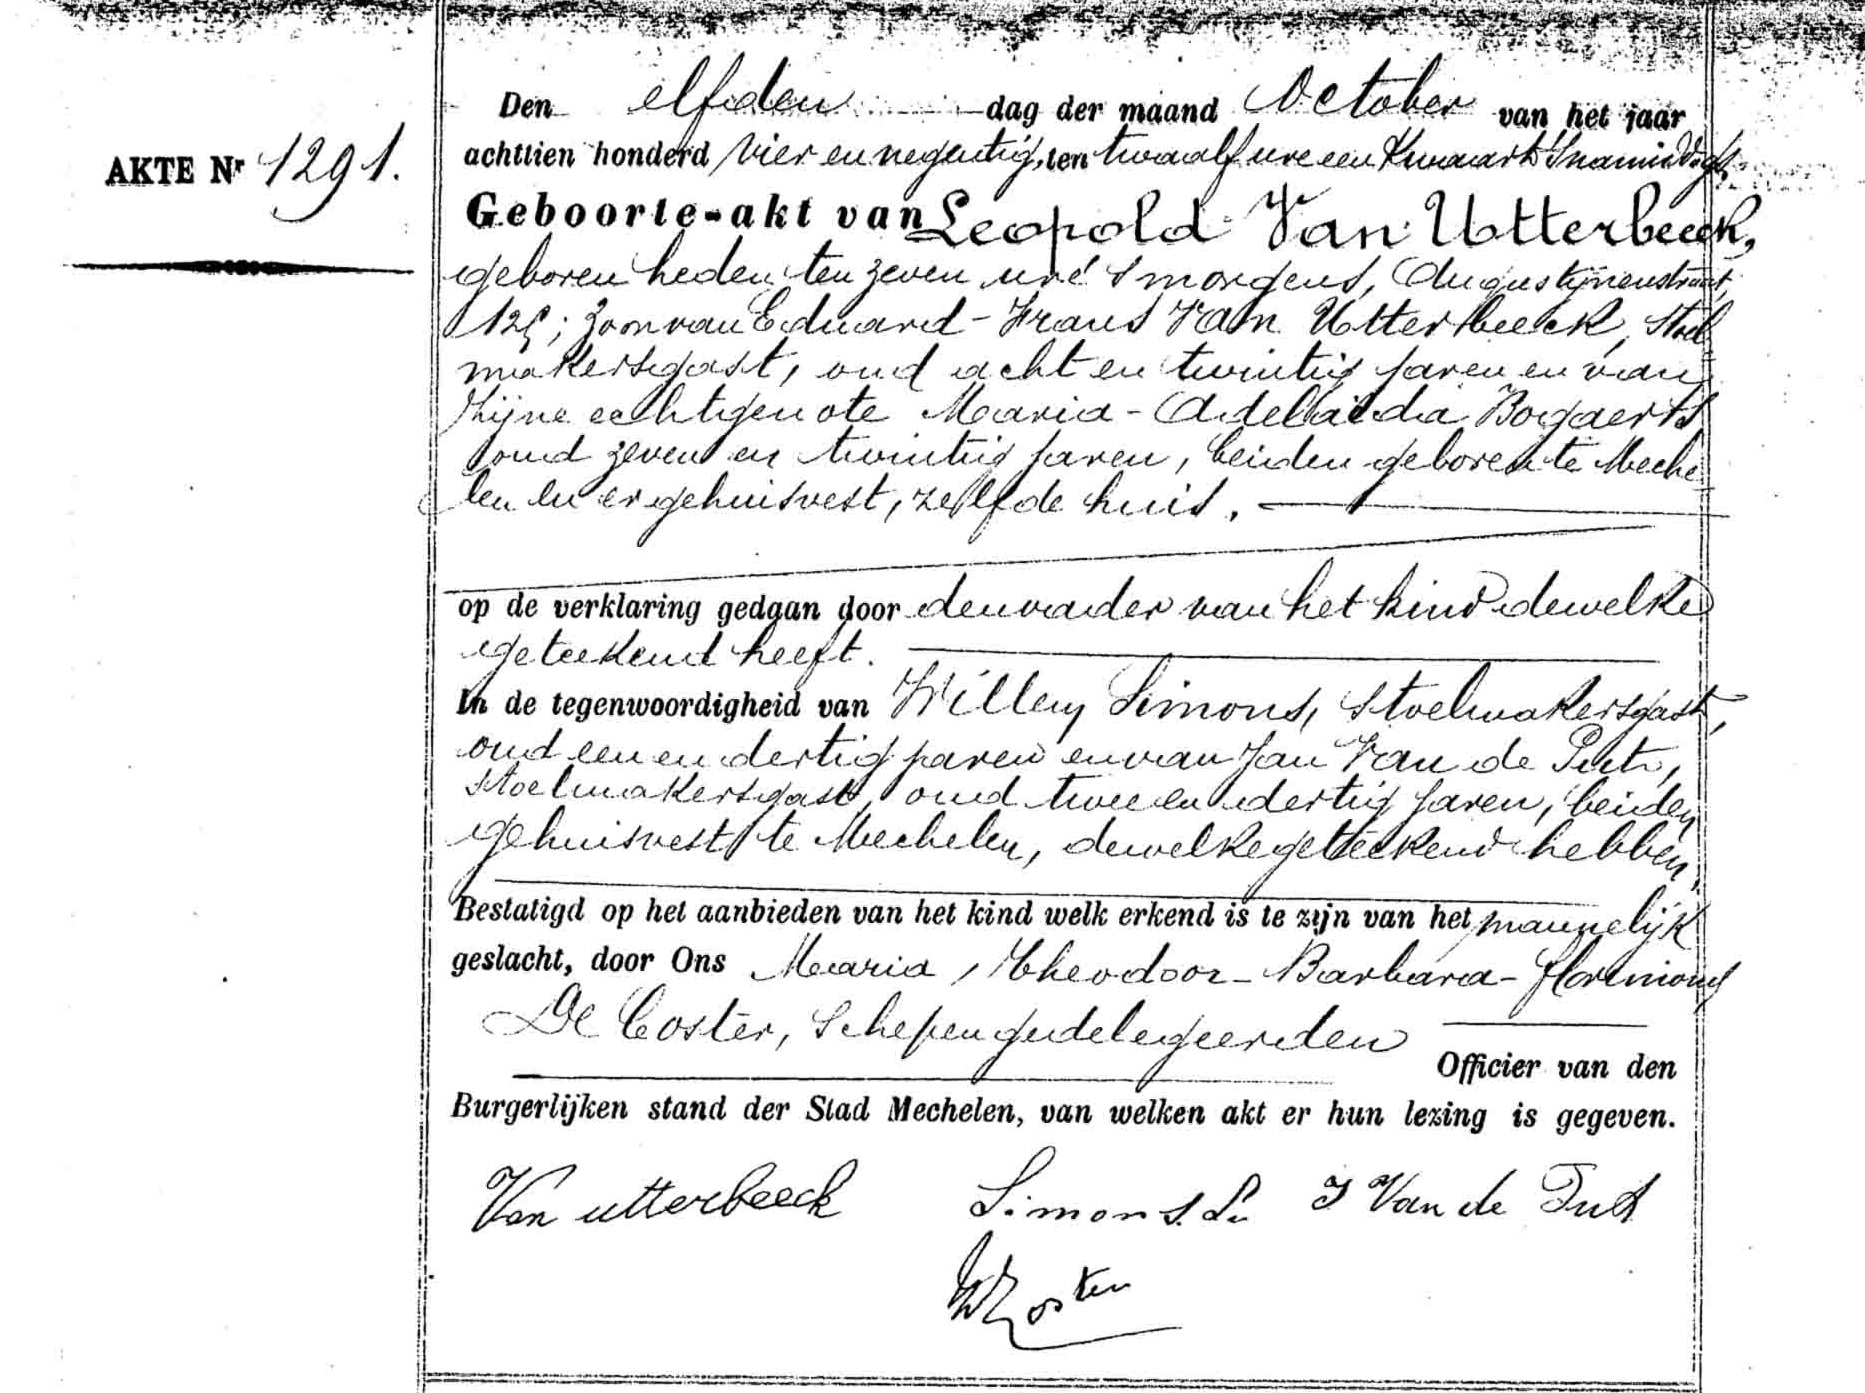 AKTE Nr 1291.
Den elfden dag der maand October van het jaar
achttien honderd vier en negentig, ten twaalf ure een kwaart 's namiddags
Geboorte-akt van Leopold Van Utterbeeck,
geboren heden ten zeven ure 's morgens, Augustijnenstraat,
125; zoon van Eduard-Frans Van Utterbeeck, stoel-
makersgast, oud acht en twintig jaren en van
zijne echtgenote Maria-Adelaïda Bogaerts
oud zeven en twintig jaren, beiden geboren te Meche-
len en er gehuisvest, zelfde huis.
op de verklaring gedaan door den vader van het kind dewelke
geteekend heeft.
In de tegenwoordigheid van Willem Simons, stoelmakersgast,
oud een en dertig jaren en van Jan Van de Putt,
stoelmakersgast, oud twee en dertig jaren, beiden
gehuisvest te Mechelen, dewelke geteekend hebben.
Bestatigd op het aanbieden van het kind welk erkend is te zijn van het mannelijk
geslacht, door Ons Maria, Theodoor-Barbara-florimond
De Coster, Schepen gedelegeerden
Officier van den
Burgerlijken stand der Stad Mechelen, van welken akt er hun lezing is gegeven.
Van utterbeeck Simons. J Van de Putt